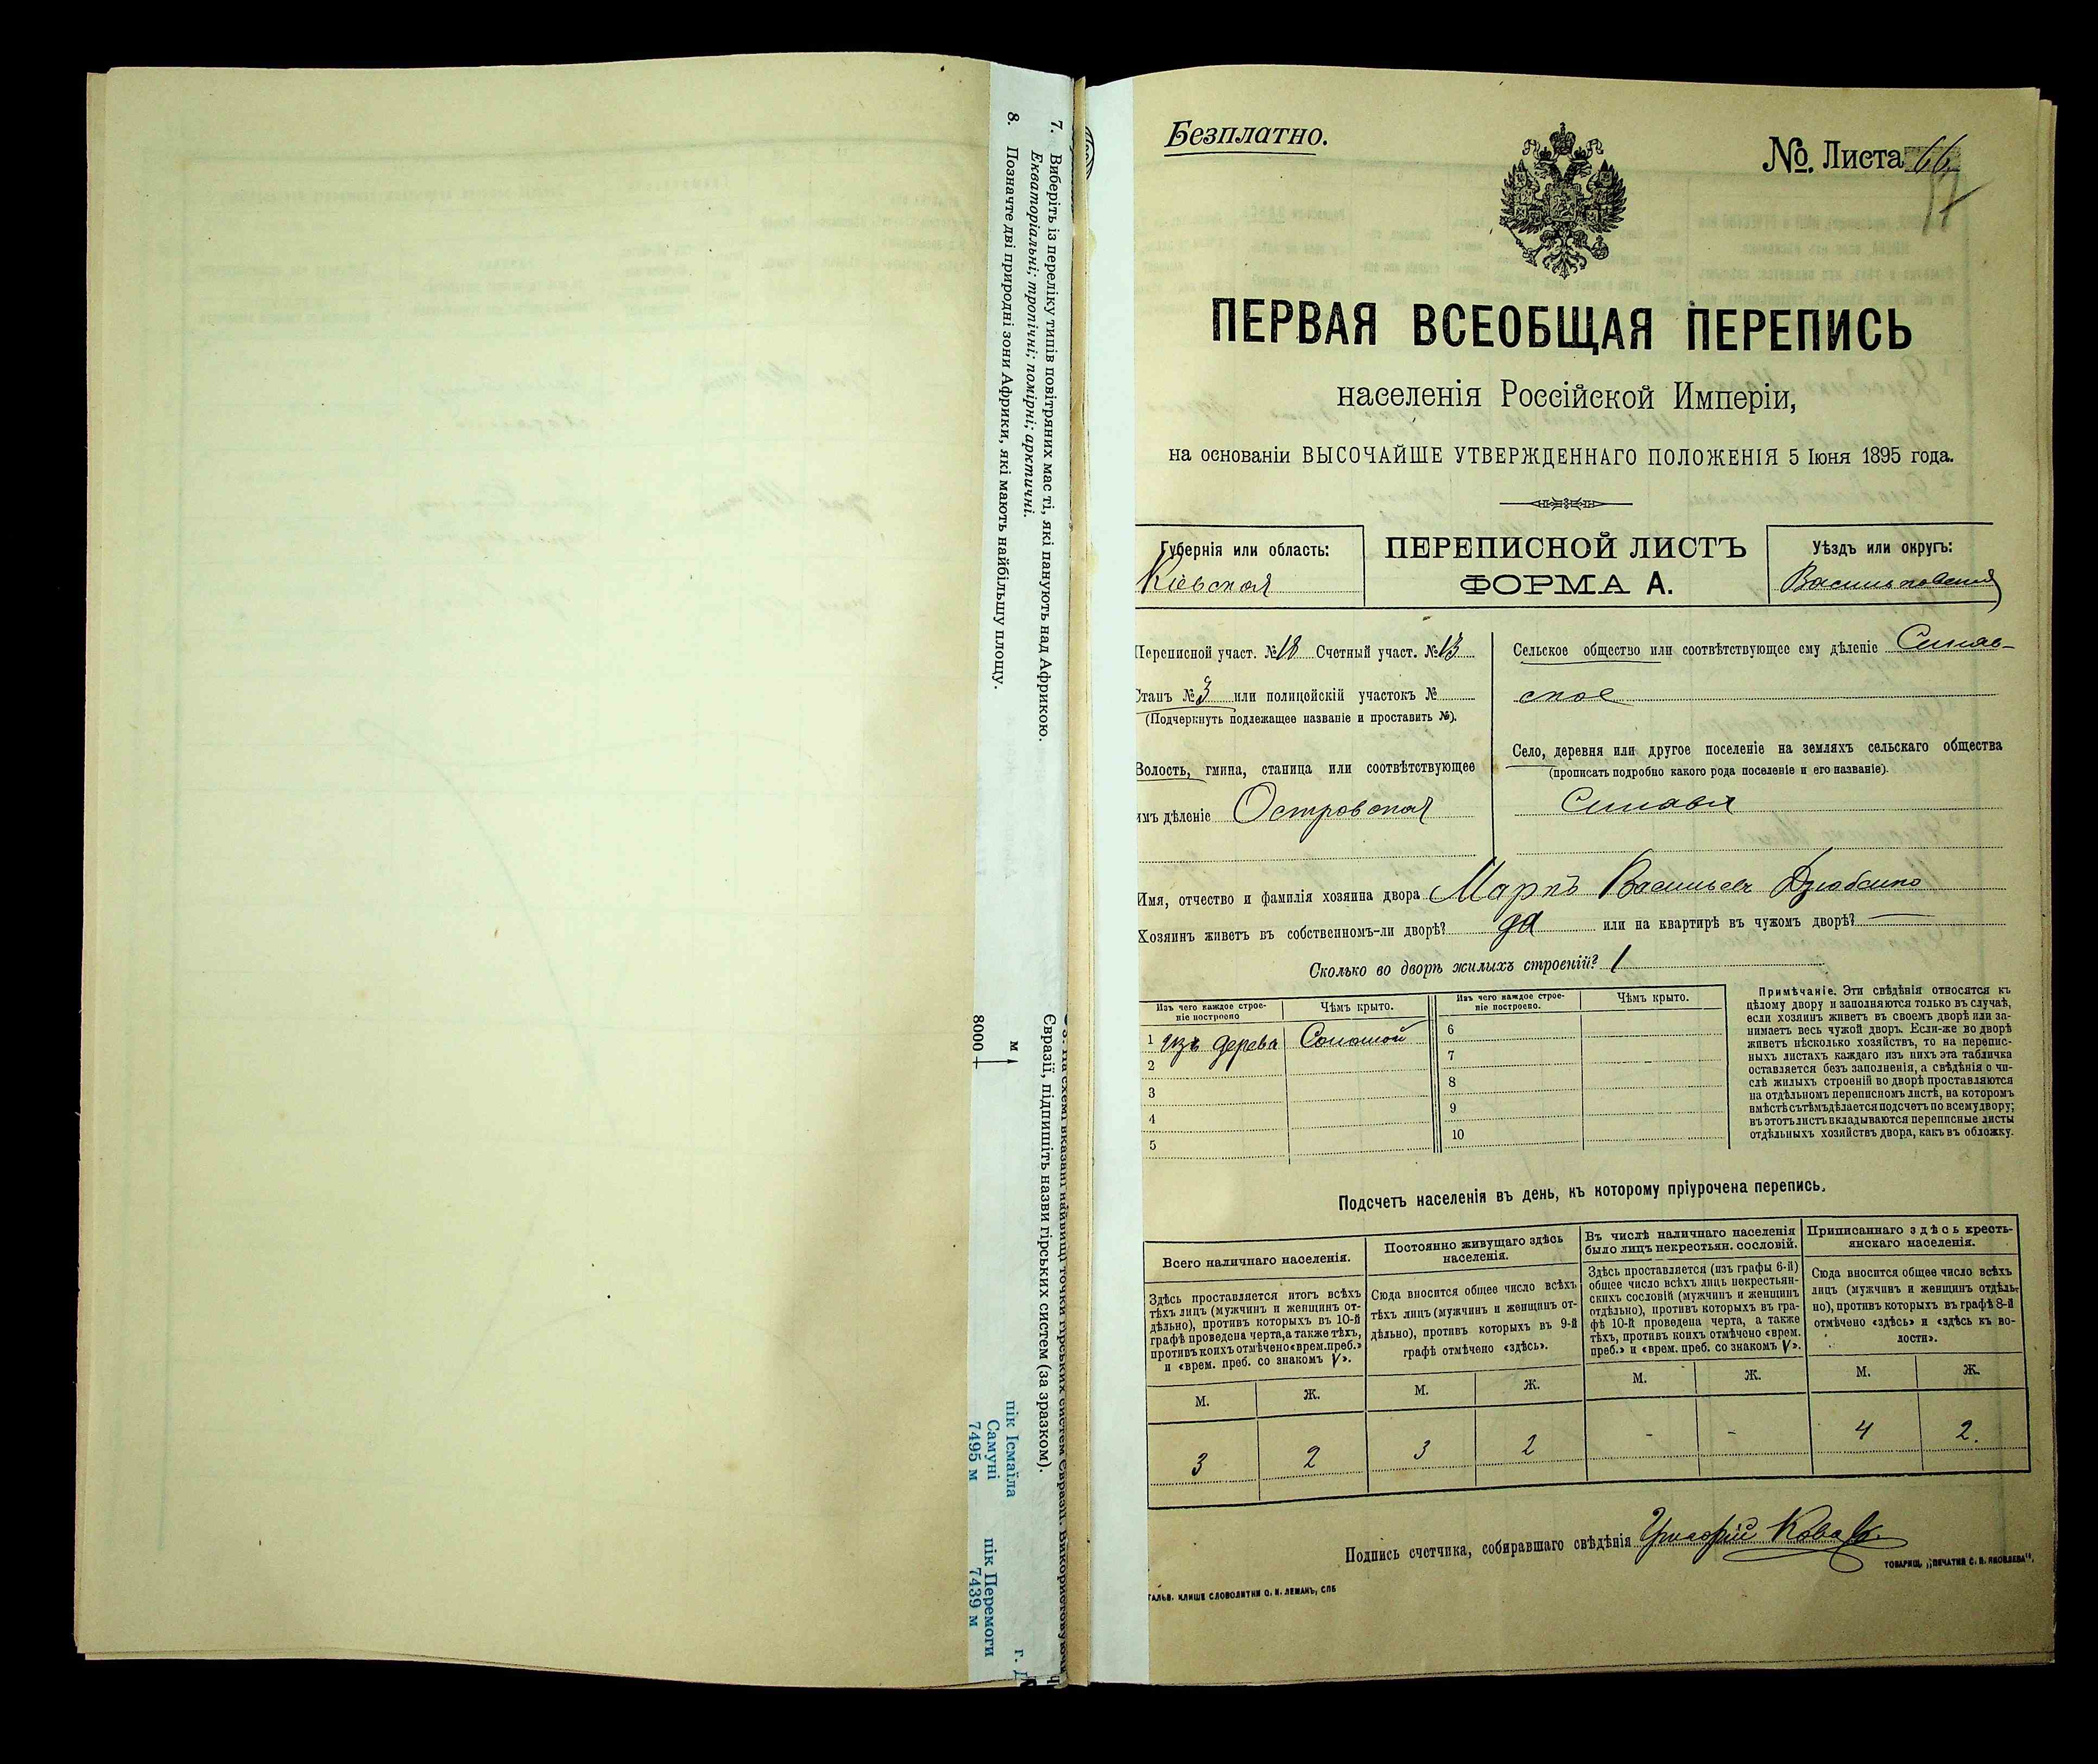 7. Виберіть із переліку типів повітряних мас ті, які панують над Африкою.
Екваторіальні; тропічні; помірні; арктичні.
8. Позначте дві природні зони Африки, які мають найбільшу площу.
Євразії, підпишіть назви гірських систем (за зразком).
м
8000
пік Ісмаїла
Самуні
7495 м
пік Перемоги
7439 м
Безплатно.
№ Листа 66
ПЕРВАЯ ВСЕОБЩАЯ ПЕРЕПИСЬ
населенія Россійской Имперіи,
на основаніи ВЫСОЧАЙШЕ УТВЕРЖДЕННАГО ПОЛОЖЕНІЯ 5 Іюня 1895 года.
Губернія или область:
Кіевская
ПЕРЕПИСНОЙ ЛИСТЪ
ФОРМА А.
Уѣздъ или округъ:
Васильковскій
Переписной участ. № 18 Счетный участ. № 13
Станъ № 3 или полицейскій участокъ №
(Подчеркнуть подлежащее названіе и проставить №).
Волость, гмина, станица или соотвѣтствующее
имъ дѣленіе Островская
Сельское общество или соотвѣтствующее ему дѣленіе Синяв-
ское
Село, деревня или другое поселеніе на земляхъ сельскаго общества
(прописать подробно какого рода поселеніе и его названіе).
Синава
Имя, отчество и фамилія хозяина двора Маркъ Васильевъ Дзюбенко
Хозяинъ живетъ въ собственномъ-ли дворѣ? да или на квартирѣ въ чужомъ дворѣ? —
Сколько во дворѣ жилыхъ строеній? 1
Изъ чего каждое строе-
ніе построено
Чѣмъ крыто.
Изъ чего каждое строе-
ніе построено.
Чѣмъ крыто.
1 изъ дерева Соломой
2
3
4
5
6
7
8
9
10
Примѣчаніе. Эти свѣдѣнія относятся къ
цѣлому двору и заполняются только въ случаѣ,
если хозяинъ живетъ въ своемъ дворѣ или за-
нимаетъ весь чужой дворъ. Если-же во дворѣ
живетъ нѣсколько хозяйствъ, то на перепис-
ныхъ листахъ каждаго изъ нихъ эта табличка
оставляется безъ заполненія, а свѣдѣнія о чи-
слѣ жилыхъ строеній во дворѣ проставляются
на отдѣльномъ переписномъ листѣ, на которомъ
вмѣстѣ съ тѣмъ дѣлается подсчетъ по всему двору;
въ этотъ листъ вкладываются переписные листы
отдѣльныхъ хозяйствъ двора, какъ въ обложку.
Подсчетъ населенія въ день, къ которому пріурочена перепись.
Всего наличнаго населенія.
Здѣсь проставляется итогъ всѣхъ
тѣхъ лицъ (мужчинъ и женщинъ от-
дѣльно), противъ которыхъ въ 10-й
графѣ проведена черта, а также тѣхъ,
противъ коихъ отмѣчено «врем. преб.»
и «врем. преб. со знакомъ V».
Постоянно живущаго здѣсь
населенія.
Сюда вносится общее число всѣхъ
тѣхъ лицъ (мужчинъ и женщинъ от-
дѣльно), противъ которыхъ въ 9-й
графѣ отмѣчено «здѣсь».
Въ числѣ наличнаго населенія
было лицъ некрестьян. сословій.
Здѣсь проставляется (изъ графы 6-й)
общее число всѣхъ лицъ некрестьян-
скихъ сословій (мужчинъ и женщинъ
отдѣльно), противъ которыхъ въ гра-
фѣ 10-й проведена черта, а также
тѣхъ, противъ коихъ отмѣчено «врем.
преб.» и «врем. преб. со знакомъ V».
Приписаннаго здѣсь кресть-
янскаго населенія.
Сюда вносится общее число всѣхъ
лицъ (мужчинъ и женщинъ отдѣль-
но), противъ которыхъ въ графѣ 8-й
отмѣчено «здѣсь» и «здѣсь къ во-
лости».
М. Ж. М. Ж. М. Ж. М. Ж.
3 2 3 2 - - 4 2.
Подпись счетчика, собиравшаго свѣдѣнія Григорій Коваль
ТОВАРИЩ. „ПЕЧАТНЯ С. П. ЯКОВЛЕВА“.
ГАЛЬВ. КЛИШЕ СЛОВОЛИТНИ О. И. ЛЕМАНЪ, СПБ